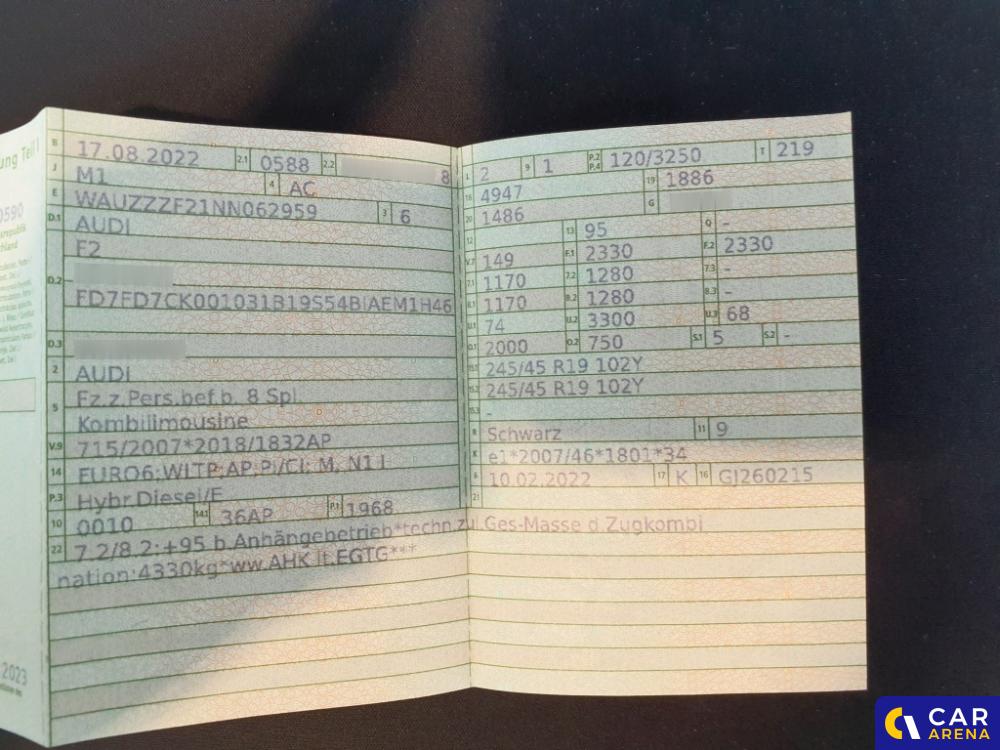 ung Teil I
0590
B 17.08.2022 2.1 0588 2.2 8
J M1 4 AC
E WAUZZZF21NN062959 3 6
D.1 AUDI
F2
D.2
FD7FD7CK001031B19S54BIAEM1H46
D.3
2 AUDI
5 Fz.z.Pers.bef.b. 8 Spl
Kombilimousine
V.9 715/2007*2018/1832AP
14 EURO6;WLTP,AP,PI/CI; M, N1 I
P.3 Hybr.Diesel/E
10 0010 14.1 36AP P.1 1968
22 7.2/8.2:+95 b.Anhängebetrieb*techn.zul.Ges-Masse d.Zugkombi
nation:4330kg*ww.AHK lt.EGTG***
L 2 9 1 P.2 P.4 120/3250 T 219
18 4947 19 1886
20 1486 G
12 13 95 Q -
V.7 149 F.1 2330 F.2 2330
7.1 1170 7.2 1280 7.3 -
8.1 1170 8.2 1280 8.3 -
U.1 74 U.2 3300 U.3 68
O.1 2000 O.2 750 S.1 5 S.2 -
15.1 245/45 R19 102Y
15.2 245/45 R19 102Y
15.3 -
R Schwarz 11 9
K e1*2007/46*1801*34
6 10.02.2022 17 K 16 GJ260215
21
2023
CAR
ARENA